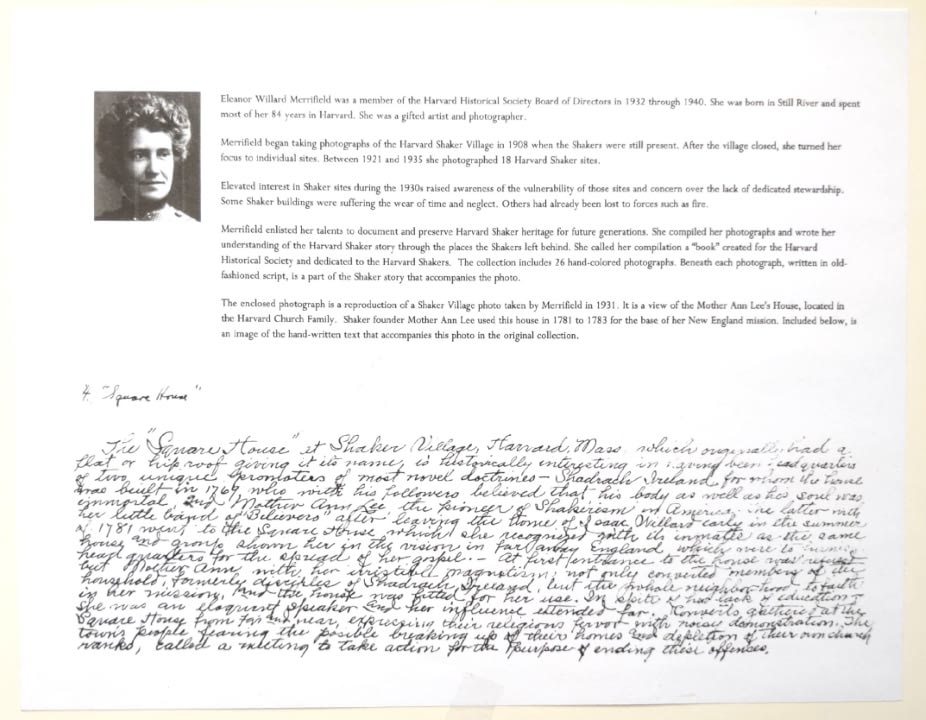 Eleanor Willard Merrifield was a member of the Harvard Historical Society Board of Directors in 1932 through 1940. She was born in Still River and spent
most of her 84 years in Harvard. She was a gifted artist and photographer.
Merrifield began taking photographs of the Harvard Shaker Village in 1908 when the Shakers were still present. After the village closed, she turned her
focus to individual sites. Between 1921 and 1935 she photographed 18 Harvard Shaker sites.
Elevated interest in Shaker sites during the 1930s raised awareness of the vulnerability of those sites and concern over the lack of dedicated stewardship.
Some Shaker buildings were suffering the wear of time and neglect. Others had already been lost to forces such as fire.
Merrifield enlisted her talents to document and preserve Harvard Shaker heritage for future generations. She compiled her photographs and wrote her
understanding of the Harvard Shaker story through the places the Shakers left behind. She called her compilation a "book" created for the Harvard
Historical Society and dedicated to the Harvard Shakers. The collection includes 26 hand-colored photographs. Beneath each photograph, written in old-
fashioned script, is a part of the Shaker story that accompanies the photo.
The enclosed photograph is a reproduction of a Shaker Village photo taken by Merrifield in 1931. It is a view of the Mother Ann Lee's House, located in
the Harvard Church Family. Shaker founder Mother Ann Lee used this house in 1781 to 1783 for the base of her New England mission. Included below, is
an image of the hand-written text that accompanies this photo in the original collection.
4. "Square House"
The "Square House" at Shaker Village, Harvard, Mass. which originally had a
flat or hip roof giving it its name, is historically interesting in having been headquarters
of two unique promoters of most novel doctrines - Shadrach Ireland for whom the house
was built in 1769 who with his followers believed that his body as well as his soul was
immortal and Mother Ann Lee the pioneer of Shakerism in America. The latter with
her little band of "Believers" after leaving the home of Isaac Willard early in the summer
of 1781 went to the Square House which she recognized with its inmates as the same
house and group shown her in the vision in far away England which were to
headquarters for the spread of her gospel. - At first entrance to the house was
but Mother Ann, with her magnetism, not only converted members of the
household, formerly disciples of Shadrach Ireland, but the whole neighborhood to faith
in her mission, and the house was fitted for her use. In spite of her lack of education
she was an eloquent speaker and her influence extended far. Converts gathered at the
Square House from far and near, expressing their religious fervor with noisy demonstration. The
towns people fearing the posible breaking up of their homes and depletion of their own church
ranks, called a meeting to take action for the purpose of ending these offences.